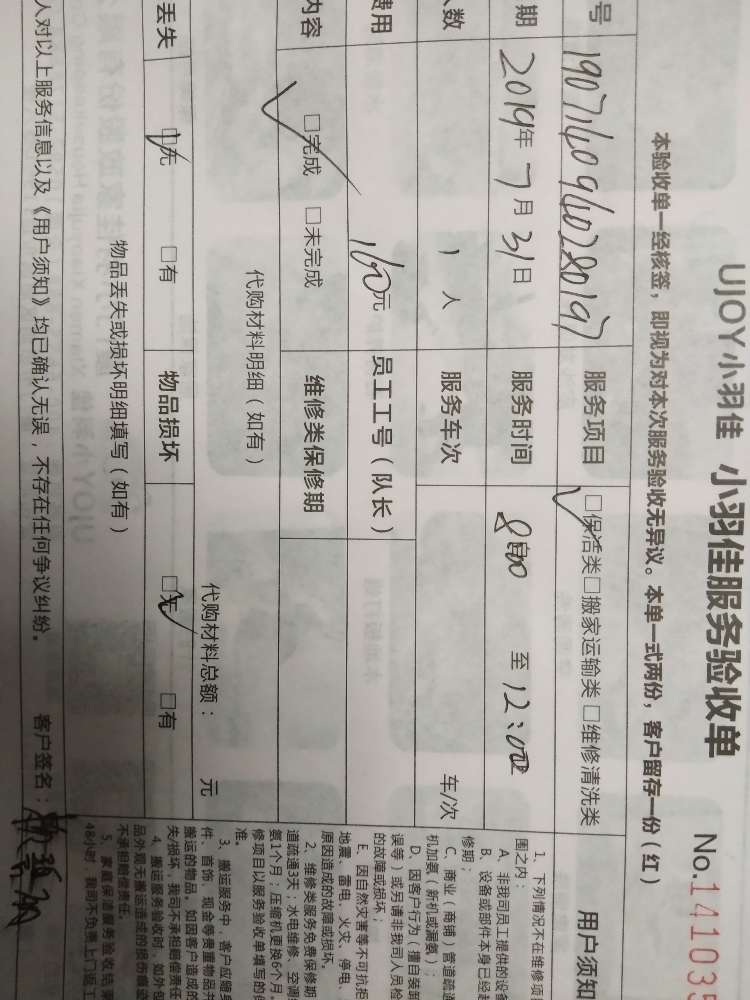 UJOY小羽佳 小羽佳服务验收单
No.141035
本验收单一经核签，即视为对本次服务验收无异议。本单一式两份，客户留存一份（红）
号 1907160960280197 服务项目 □保洁类□搬家运输类□维修清洗类 用户须知
期 2019年7月31日 服务时间 8:00 至 12:00
人数 1 人 服务车次 车/次
费用 160元 员工工号（队长）
内容 □完成 □未完成 维修类保修期
代购材料明细（如有） 代购材料总额： 元
丢失 □无 □有 物品损坏 □无 □有
物品丢失或损坏明细填写（如有）
人对以上服务信息以及《用户须知》均已确认无误，不存在任何争议纠纷。 客户签名：
1、下列情况不在维修项
围之内：
A、非我司员工提供的设备
B、设备或部件本身已经
修期；
C、商业（商铺）管道疏通
机加氨（新机或漏氨）；
D、因客户行为（擅自装卸
误等）或另请非我司人员检
的故障或损坏；
E、因自然灾害等不可抗拒
地震、雷电、火灾、停电、
原因造成的故障或损坏。
2、维修类服务免费保修期
道疏通3天；水电维修、空调
氨1个月；压缩机更换6个月。
修项目以服务验收单填写的
准。
3、搬运服务中，客户应随身
件、首饰、现金等贵重物品并
搬运的物品。如因客户造成的
失/损坏，我司不承担赔偿责任
4、搬运服务验收时，如外包
品外观无搬运造成的损伤痕迹
不承担赔偿责任。
5、家庭保洁服务验收结束
48小时，我司不负责上门返工